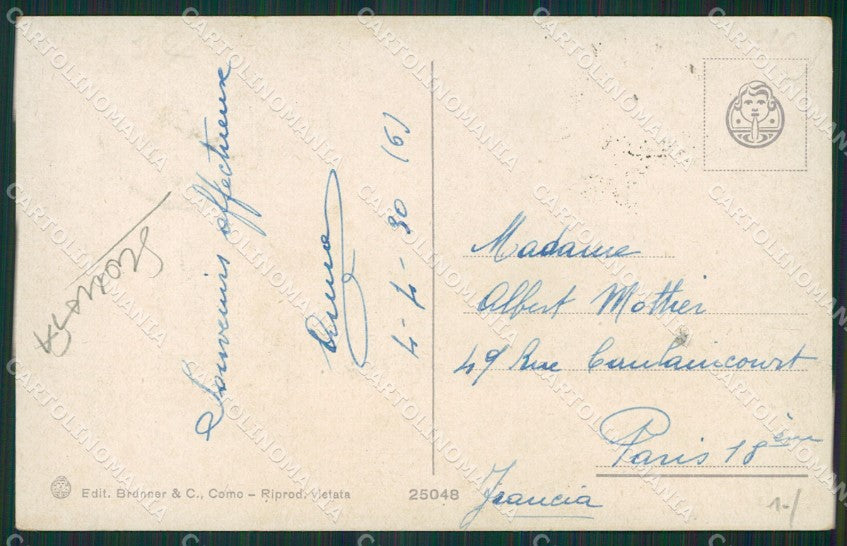 Souvenirs affectueux
Anna
4-4-30 (6)
Madame
Albert Mottier
49 Rue Caulaincourt
Paris 18ème
Francia
Edit. Brunner & C., Como – Riprod. vietata
25048
1-/
CARTOLINOMANIA